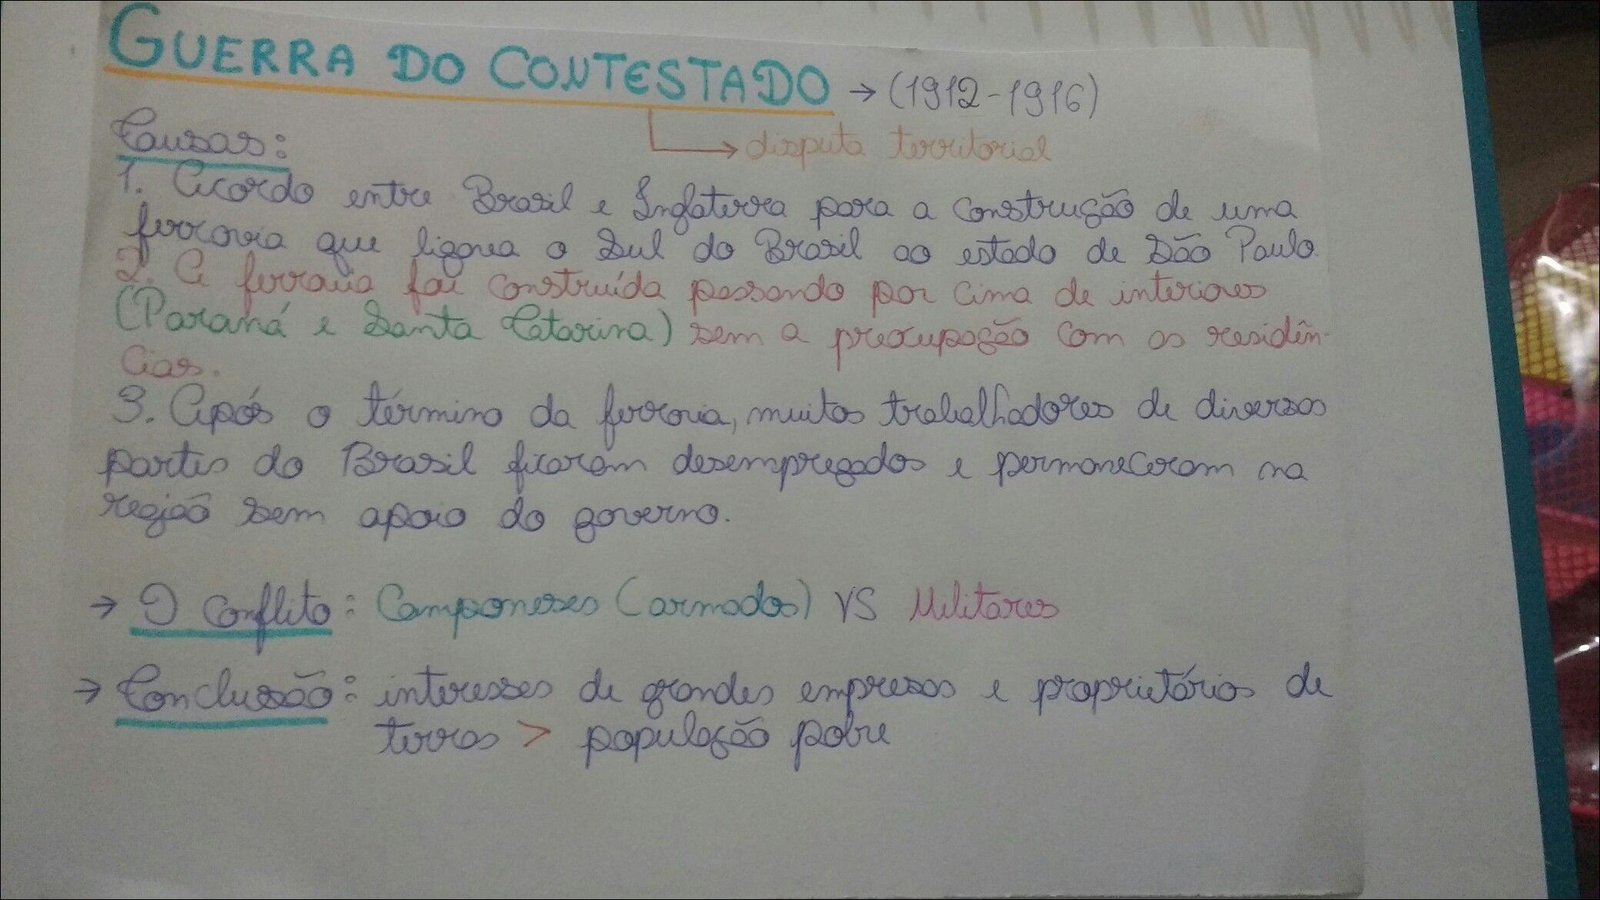 GUERRA DO CONTESTADO → (1912-1916)
→ disputa territorial
Causas:
1. Acordo entre Brasil e Inglaterra para a construção de uma
ferrovia que ligava o Sul do Brasil ao estado de São Paulo.
2. A ferrovia foi construída passando por cima de interiores
(Paraná e Santa Catarina) sem a preocupação com as residên-
cias.
3. Após o término da ferrovia, muitos trabalhadores de diversas
partes do Brasil ficaram desempregados e permaneceram na
região sem apoio do governo.
→ O conflito: Camponeses (armados) VS Militares
→ Conclusão: interesses de grandes empresas e proprietários de
terras > população pobre